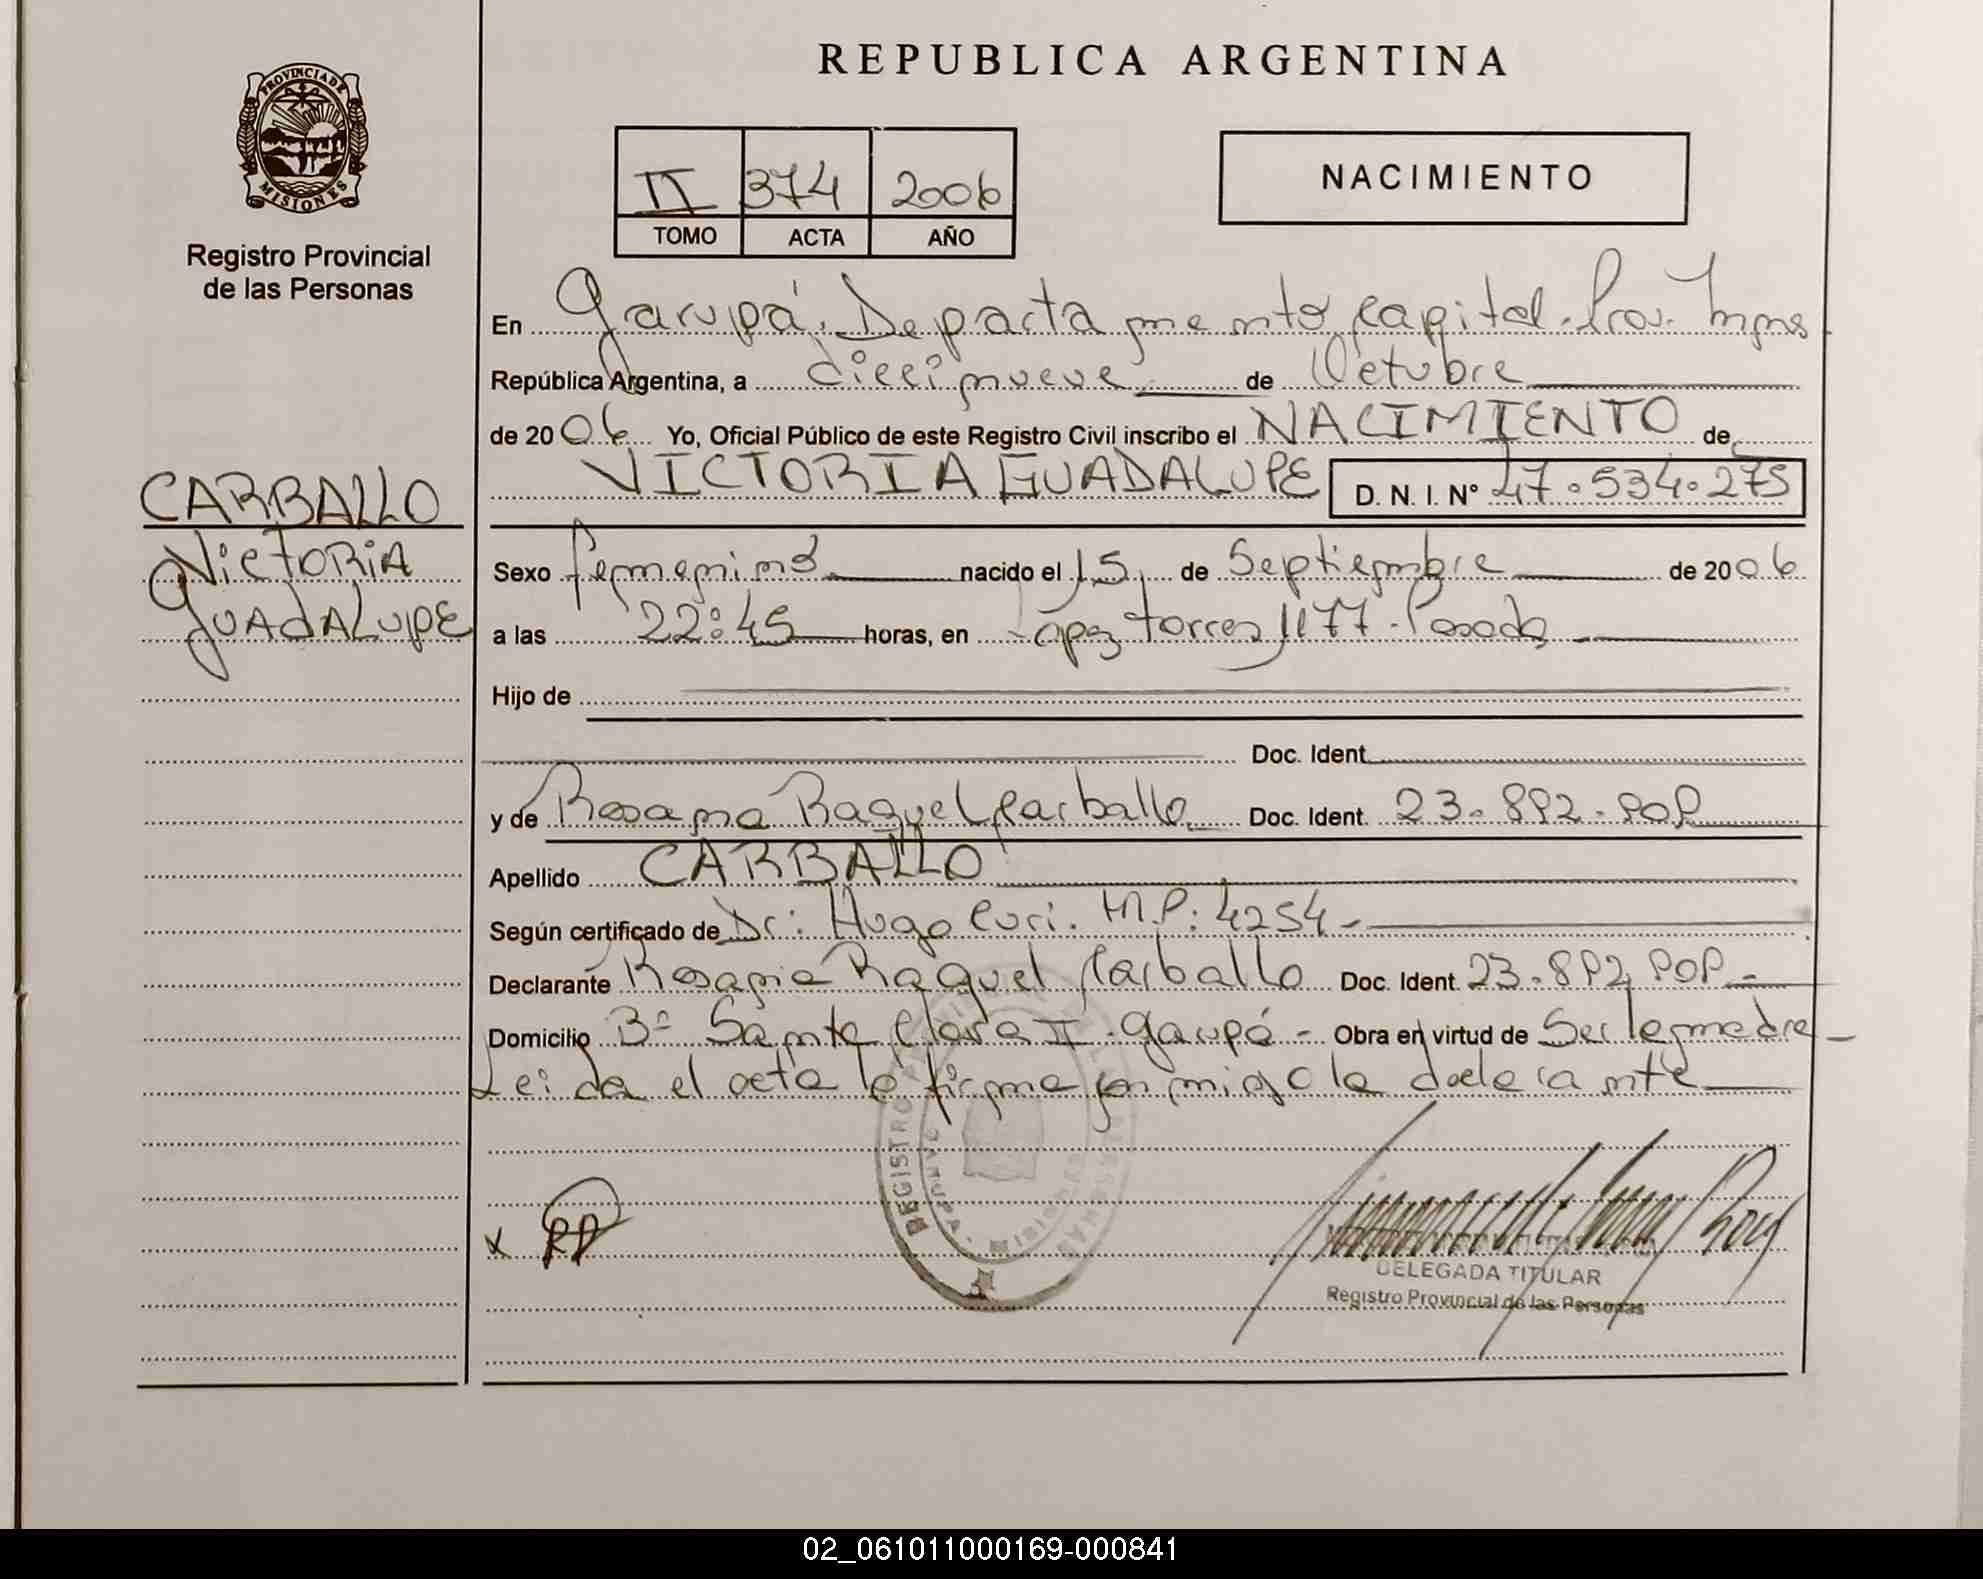 REPUBLICA ARGENTINA
PROVINCIA DE
MISIONES
Registro Provincial
de las Personas
II 374 2006
TOMO ACTA AÑO
NACIMIENTO
En Garupá, Departamento Capital. Prov. Mnes
República Argentina, a diecinueve de Octubre
de 2006 Yo, Oficial Público de este Registro Civil inscribo el NACIMIENTO de
VICTORIA GUADALUPE D. N. I. Nº 47.534.275
CARBALLO
Victoria
Guadalupe
Sexo femenino nacido el 15 de Septiembre de 2006
a las 22:45 horas, en López Torres 1177. Posadas
Hijo de
Doc. Ident.
y de Rosana Raquel Carballo Doc. Ident. 23.892.909
Apellido CARBALLO
Según certificado de Dr: Hugo Curi. M.P: 4254
Declarante Rosana Raquel Carballo Doc. Ident. 23.892.909
Domicilio Bº Santa Clara II. Garupá - Obra en virtud de Ser la madre
Leida el acta la firma conmigo la declarante
REGISTRO PROVINCIAL DE LAS PERSONAS
GARUPA - MISIONES
x RC
DELEGADA TITULAR
Registro Provincial de las Personas
02_061011000169-000841